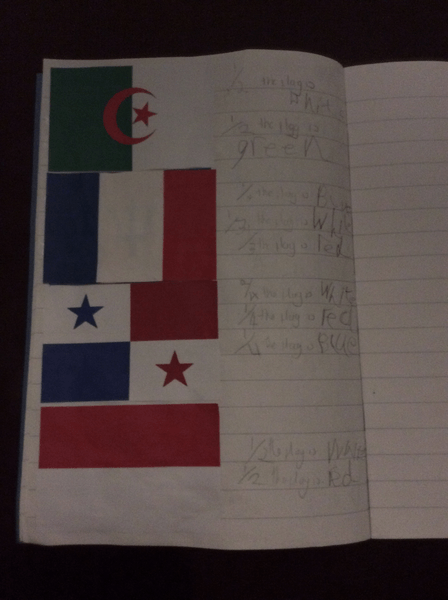 1/2 the flag is
white
1/2 the flag is
green
the flag is Blue
the flag is white
the flag is red
the flag is white
the flag is red
1/4 the flag is Blue
1/2 the flag is white
1/2 the flag is red